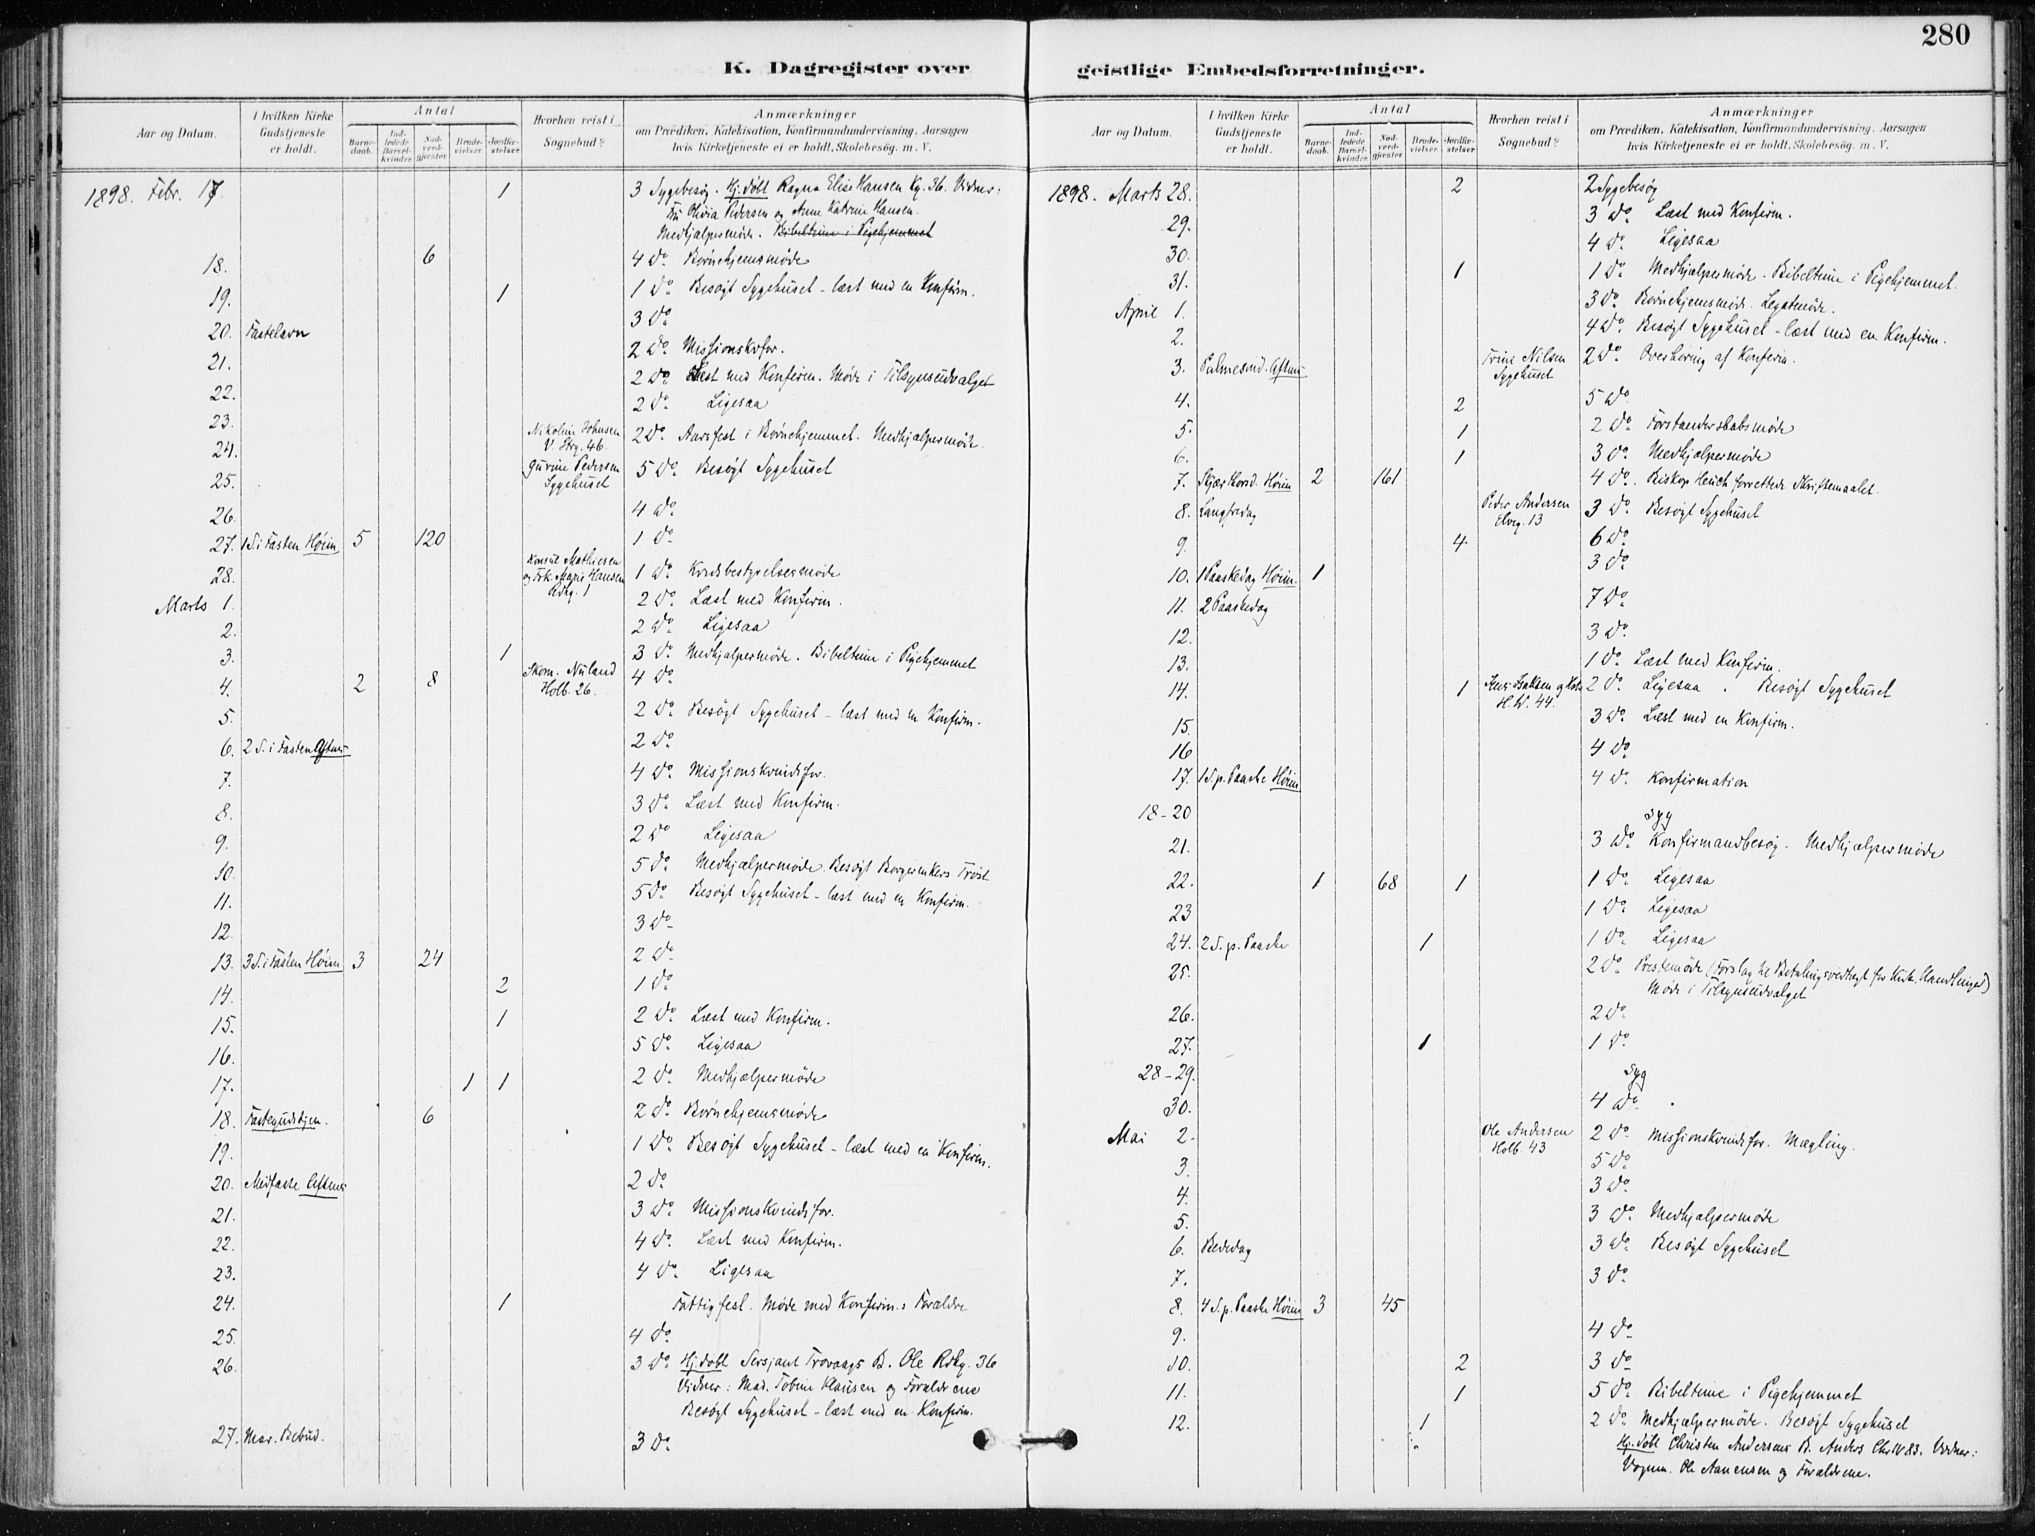 280
K. Dagregister over
geistlige Embedsforretninger.
Aar og Datum.
I hvilken Kirke Gudstjeneste er holdt.
Antal
Barnedaab.
Indledede Barselkvinder.
Nadverdgjester.
Brudevielser.
Jordfæstelser
Hvorhen reist i Sognebud?
Anmærkninger
om Prædiken, Katekisation, Konfirmandundervisning, Aarsagen
hvis Kirketjeneste ei er holdt, Skolebesøg. m. V.
1898. Febr. 17. 1 3 Sygebesøg. Hj.døbt Ragna Elise Hansen Kg. 36. Vidner:
Fru Olivia Pedersen og Anne Katrine Hansen.
Medhjælpermøde. Bibeltime i Pigehjemmet
18. 6 4 Do. Børnehjemsmøde
19. 1 1 Do. Besøgt Sygehuset - læst med en Konfirm.
20. Fastelavn 3 Do
21. 2 Do. Missionskvfor.
22. 2 Do. Læst med Konfirm. Møde i Tilsynsudvalget
23. 2 Do. Ligesaa
24. Nikoline Johnsen V. Strg. 46 2 Do. Aarsfest i Børnehjemmet. Medhjælpermøde.
25. Gurine Pedersen Sygehuset 5 Do. Besøgt Sygehuset
26. 4 Do.
27. 1 S. i Fasten Høim 5 120 1 Do.
28. Konsul Mathiesen og Frk. Marie Hansen Rdhg. 1 1 Do. Kredsbestyrelsesmøde
Marts 1. 2 Do. Læst med Konfirm.
2. 2 Do. Ligesaa
3. 1 3 Do. Medhjælpermøde. Bibeltime i Pigehjemmet
4. 2 8 Skom. Nuland Holb. 26. 4 Do.
5. 2 Do. Besøgt Sygehuset - læst med en Konfirm.
6. 2 S. i Fasten Aftens 2 Do.
7. 4 Do. Missionskvindefor.
8. 3 Do. Læst med Konfirm.
9. 2 Do Ligesaa
10. 5 Do. Medhjælpermøde. Besøgt Borgerenkers Trøst
11. 5 Do. Besøgt Sygehuset - læst med en Konfirm.
12. 3 Do
13. 3 S. i Fasten Høim 3 24 2 Do.
14. 2 1 Do.
15. 1 2 Do. Læst med Konfirm.
16. 5 Do. Ligesaa
17. 1 1 2 Do. Medhjælpermøde
18. Fastegudstjen. 6 2 Do. Børnehjemsmøde
19. 1 Do. Besøgt Sygehuset - læst med en Konfirm.
20. Midfaste Aftens 2 Do.
21. 3 Do. Missionskvindefor.
22. 4 Do. Læst med Konfirm.
23. 4 Do. Ligesaa
24. 1 Fattigfest. Møde med Konfirm.s Forældre
25. 4 Do.
26. 3 Do. Hj.døbt Sersjant Trovaags B. Ole Rdhg. 36
Vidner: Mad. Tobine Klausen og Forældrene
Besøgt Sygehuset - læst med en Konfirm.
27. Mar. Bebud. 3 Do.
Aar og Datum.
I hvilken Kirke Gudstjeneste er holdt.
Antal
Barnedaab.
Indledede Barselkvinder.
Nadverdgjester.
Brudevielser.
Jordfæstelser
Hvorhen reist i Sognebud?
Anmærkninger
om Prædiken, Katekisation, Konfirmandundervisning, Aarsagen
hvis Kirketjeneste ei er holdt, Skolebesøg. m. V.
1898. Marts 28. 2 2 Sygebesøg
29. 3 Do. Læst med Konfirm.
30. 4 Do. Ligesaa
31. 1 1 Do. Medhjælpermøde. Bibeltime i Pigehjemmet.
April 1. 3 Do. Børnehjemsmøde. Legatmøde.
2. 4 Do. Besøgt Sygehuset - læst med en Konfirm.
3. Palmesønd. Aftens Trine Nilsen Sygehuset 2 Do. Overhøring af Konfirm.
4. 2 5 Do
5. 1 2 Do. Forstanderskabsmøde
6. 1 3 Do. Medhjælpermøde
7. Skjærtorsd. Høim 2 161 4 Do. Biskop Heuch forrettede Skriftemaalet.
8. Langfredag Peder Andersen Elveg. 13 3 Do. Besøgt Sygehuset
9. 4 6 Do.
10. 1 Paaskedag Høim. 1 3 Do.
11. 2 Paaskedag 7 Do.
12. 3 Do.
13. 1 Do. Læst med Konfirm.
14. 1 H. W. 44. 2 Do. Ligesaa. Besøgt Sygehuset
15. 3 Do. Læst med en Konfirm.
16 4 Do
17. 1 S. p. Paaske Høim 4 Do. Konfirmation
18-20 Syg
21. 3 Do. Konfirmandbesøg. Medhjælpermøde
22. 1 68 1 1 Do. Ligesaa
23 1 Do. Ligesaa
24. 2 S. p. Paaske 1 1 Do. Ligesaa
25. 2 Do. Prestemøde (Forslag til Betalingsvedtægt for Kirk. Handlinger)
Møde i Tilsynsudvalget
26. 2 Do.
27. 1 1 Do.
28-29. Syg
30. 4 Do.
Mai 2. Ole Andersen Holb. 43 2 Do. Missionskvindefor. Mægling.
3. 5 Do.
4. 3 Do.
5. 3 Do. Medhjælpermøde
6. Bededag 3 Do. Besøgt Sygehuset
7. 3 Do.
8. 4 S. p. Paaske Høim 3 45
9. 4 Do.
10. 2 3 Do
11. 1 5 Do. Bibeltime i Pigehjemmet
12. 1 2 Do. Medhjælpermøde. Besøgt Sygehuset
Hj.døbt Christen Andersens B. Anders Chr IV 83. Vidner:
Vognm. Ole Aanensen og Forældrene.